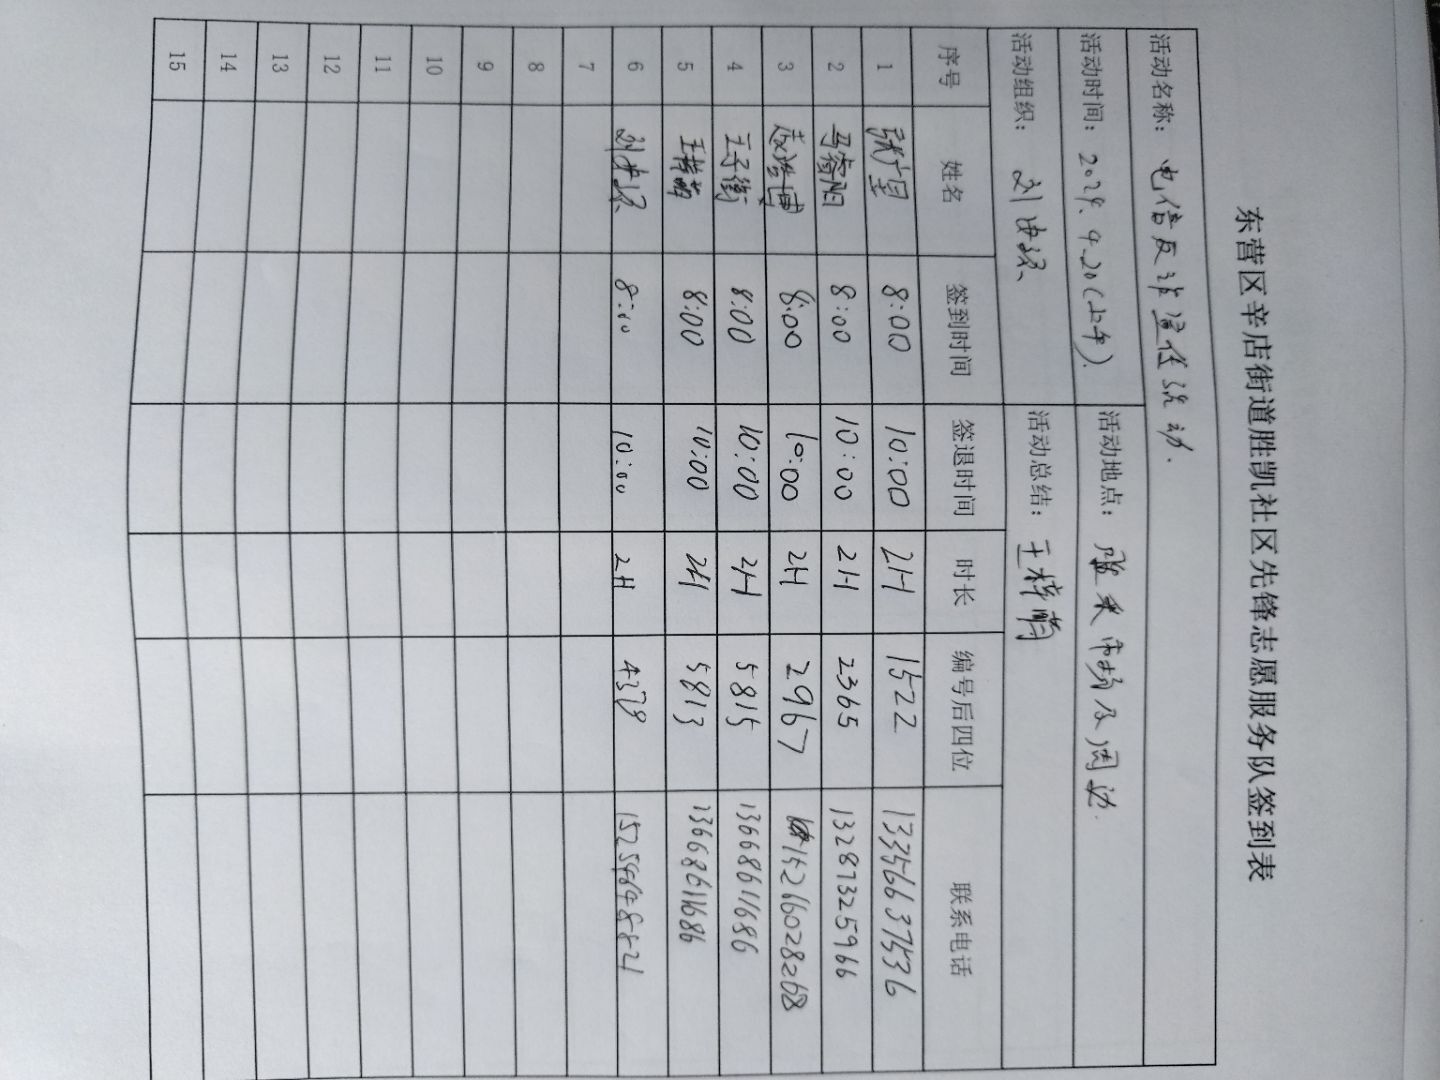 东营区辛店街道胜凯社区先锋志愿服务队签到表
活动名称： 电信反诈宣传活动.
活动时间：2024.4.20(上午). 活动地点： 胜采市场及周边.
活动组织： 刘 活动总结： 王梓萌
序号 姓名 签到时间 签退时间 时长 编号后四位 联系电话
1 张广星 8:00 10:00 2H 1522 13356637536
2 马睿阳 8:00 10:00 2H 2365 13287325966
3 赵浩博 8:00 10:00 2H 2967 15216028268
4 王子衡 8:00 10:00 2H 5815 13668611686
5 王梓萌 8:00 10:00 2H 5813 13668611686
6 刘 8:00 10:00 2H 15254648821
7
8
9
10
11
12
13
14
15